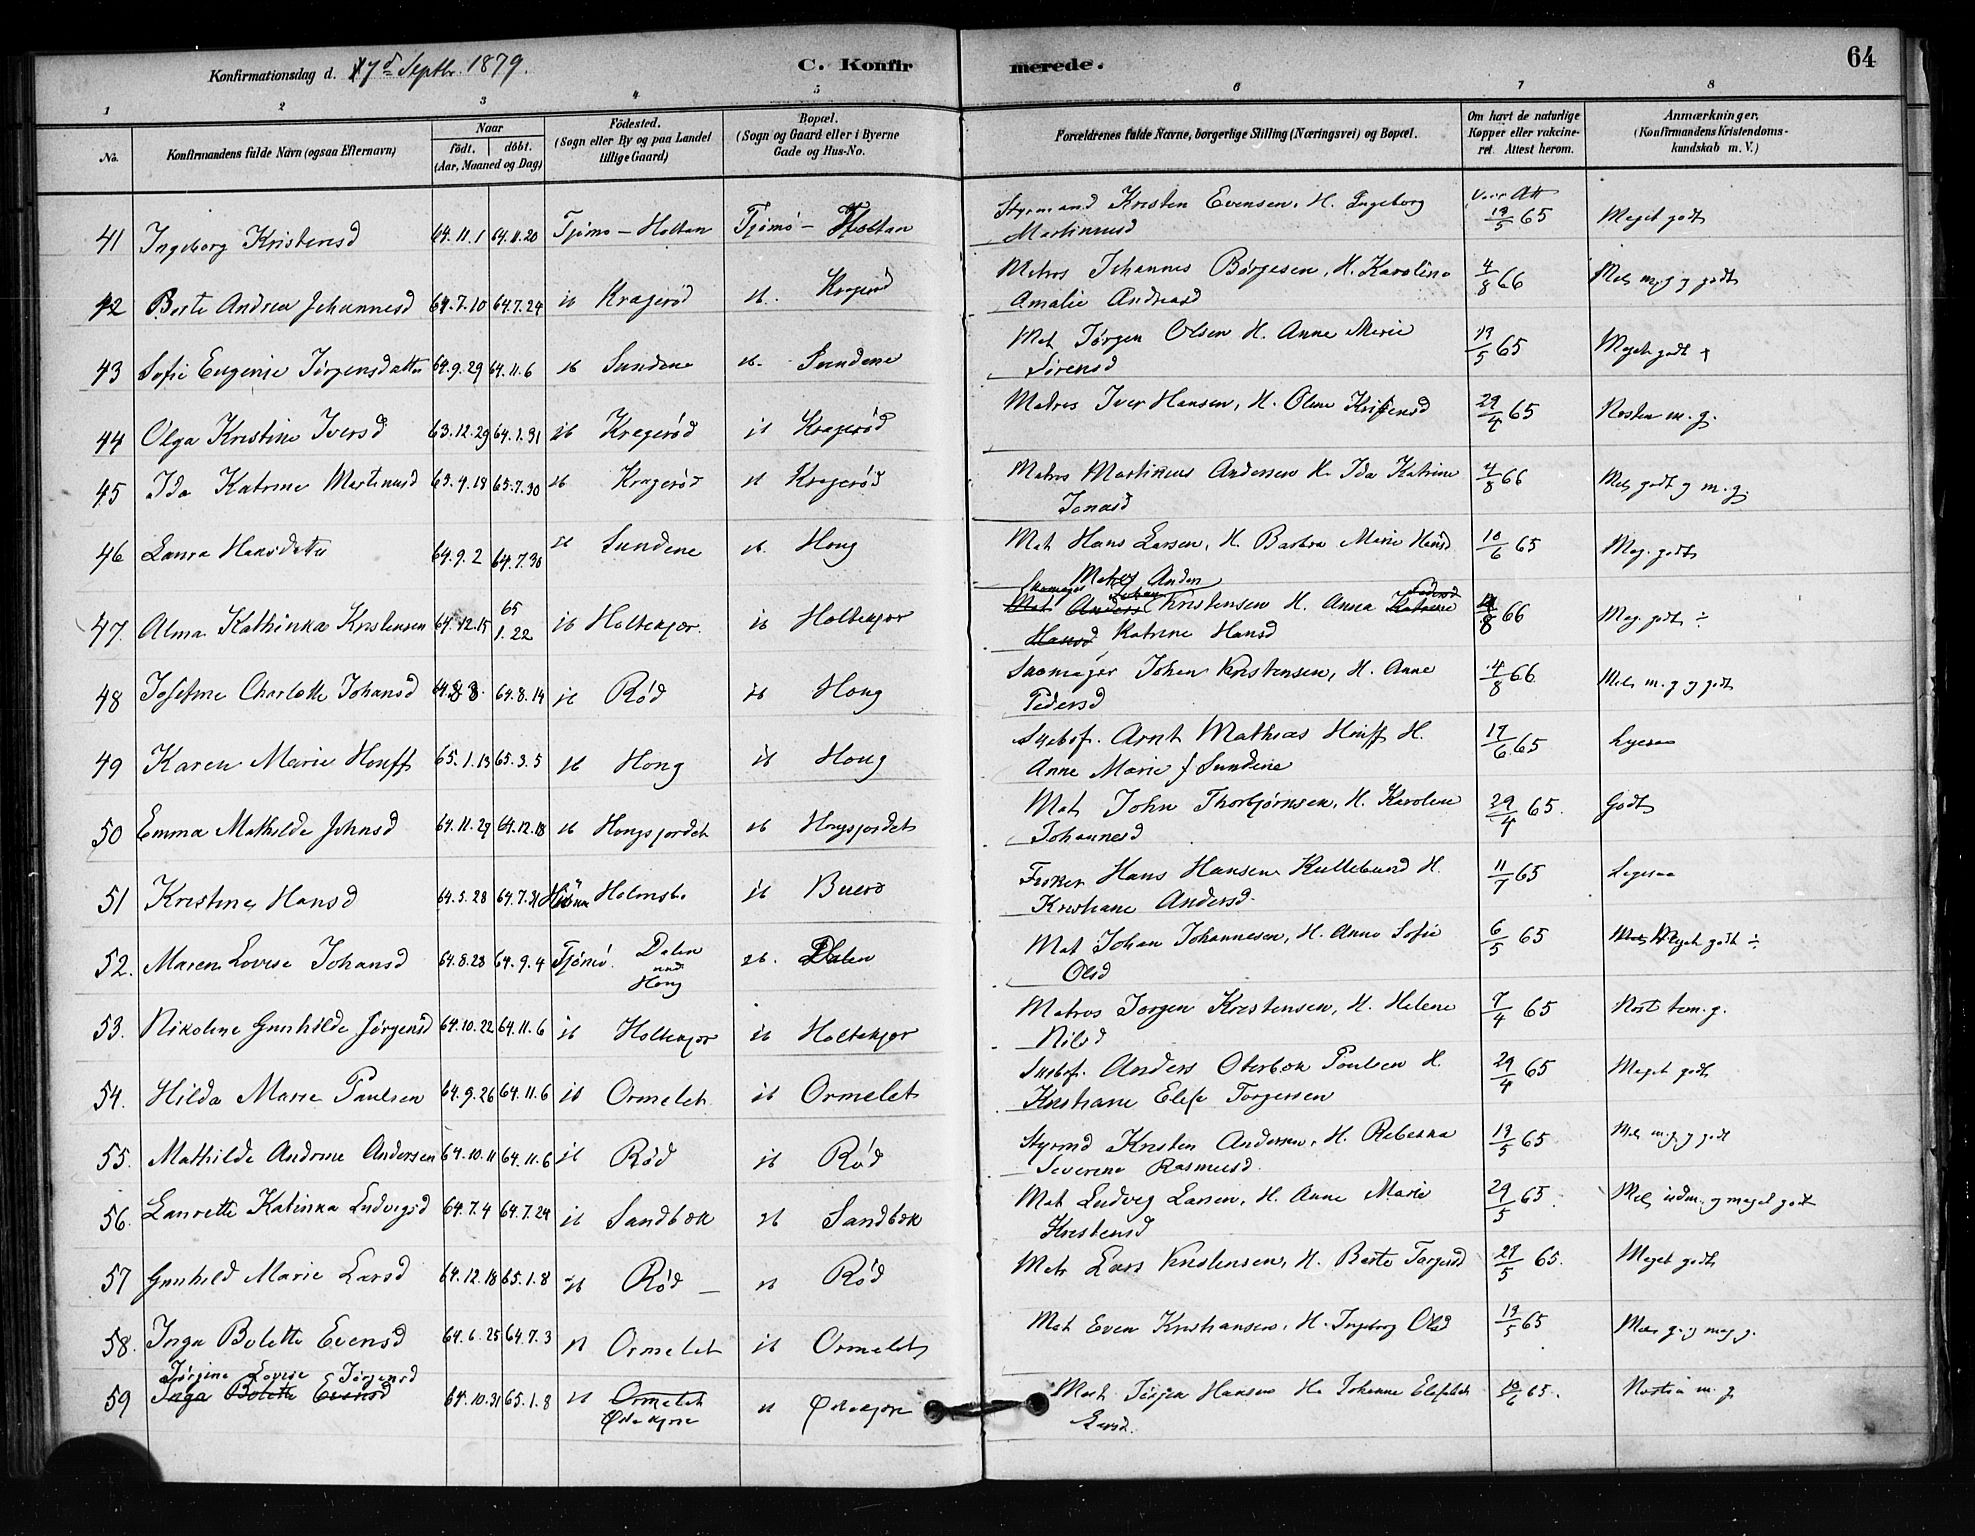 Konfirmationsdag d. 7d Septbr. 1879. C. Konfirmerede. 64
1 2 3 4 5 6 7 8
No. Konfirmandens fulde Navn (ogsaa Efternavn) Naar født. døbt. (Aar, Maaned og Dag) Fødested. (Sogn eller By og paa Landet tillige Gaard) Bopæl. (Sogn og Gaard eller i Byerne Gade og Hus-No. Forældrenes fulde Navne, borgerlige Stilling (Næringsvei) og Bopæl. Om havt de naturlige Kopper eller vakcineret. Attest herom. Anmærkninger. (Konfirmandens Kristendomskundskab m. V.)
41 Ingeborg Kristensd 64.11.1 64.11.20 Tjømø - Holtan Tjømø - Holtan Styrmand Kristen Evensen, H. Ingeborg Martinusd 19/5 65 Meget godt
42 Berte Andrea Johannesd 64.7.10 64.7.24 it Kragerød it. Kragerød Matros Johannes Børgesen, H. Karoline Amalie Andreasd 4/8 66 Mel. m.g. g godt
43 Sofie Eugenie Jørgensdatter 64.9.29 64.11.6 it Sundene it. Sundene Mat Jørgen Olsen H. Anne Marie Sørensd 19/5 65 Meget godt +
44 Olga Kristine Iversd 63.12.29 64.1.31 it Kragerød it Kragerød Matros Iver Hansen, H. Oline Kristensd 29/4 65 Nesten m. g.
45 Ida Katrine Martinusd 65.4.18 65.7.30 it Kragerød it Kragerød Matros Martinius Andersen H. Ida Katrine Jonasd 4/8 66 Mel. godt g m. g.
46 Laura Hansdatter 64.9.2 64.7.30 it Sundene it. Houg Mat Hans Larsen, H. Barbra Marie Hansd 10/6 65 Meg. godt
47. Alma Kathinka Kristensen 64.12.15 65 1.22 it Holtekjær. it Holtekjær Skomager Johan Matros Anders Mat Anders Kristensen H. Anna Katrine Pedersd Hansd Katrine Hansd 8 66 Meg. godt ÷
48 Josefine Charlotte Johansd 64.8.8. 64.8.14 it Rød it Houg Skomager Johan Kristensen, H. Anne Pedersd 4/8 66 Mel. m. g g godt
49 Karen Marie Houff 65.1.13 65.3.5 it Houg it Houg Arnt Mathias Houff H. Anne Marie f Sundene 17/6 65
50 Emma Mathilde Johnsd 64.11.29 64.12.18 it Hougsjordet it Hougsjordet Mat John Thorbjørnsen, H. Karoline Johannesd 29/4 65. Godt
51 Kristine Hansd 64.5.28 64.7.31 Holmsbo it Buerø Fisker Hans Hansen Kullebund H. Kristiane Andersd. 11/7 65
52. Maren Lovise Johansd 64.8.28 64.9.4 Tjømø. Dalen und Houg it. Dalen Mat Johan Johannesen, H. Anne Sofie Olsd 6/5 65 Mel Meget godt ÷
53. Nikoline Gunhilde Jørgensd 64.10.22 64.11.6 it Holtekjær it Holtekjær Matros Jørgen Kristensen, H. Helene Nilsd 7/4 65 m. g.
54. Hilda Marie Paulsen 64.9.26 64.11.6 it Ormelet it Ormelet Anders Oterbek Paulsen H. Kristiane Elise Torgersen 29/4 65 Meget godt
55. Mathilde Andrine Andersen 64.10.11 64.11.6 it Rød it Rød Styrmd Kristen Andersen, H. Rebekka Severine Rasmusd. 19/5 65 Mel. m. g. g godt
56. Laurette Katinka Ludvigsd 64.7.4 64.7.24 it Sandbæk it Sandbæk Mat Ludvig Larsen, H. Anne Marie Kristensd 29/5 65. Mel. udm. g meget godt
57 Gunhild Marie Larsd 64.12.18 65.1.8 it Rød - it Rød Mat Lars Kristensen, H. Berte Torgersd 29/5 65. Meget godt
58. Inga Bolette Evensd 64.6.25 64.7.3 it Ormelet it Ormelet Mat Even Kristiansen, H. Ingeborg Olsd 19/5 65 Mel. g. g meg. g.
59 Jørgine Lovise Jørgensd Inga Bolette Evensd 64.10.31 65.1.8 it Ormelet Ødekjære it Ødekjære Mat Jørgen Hansen H. Johanne Larsd. 10/6 65. Nesten m. g